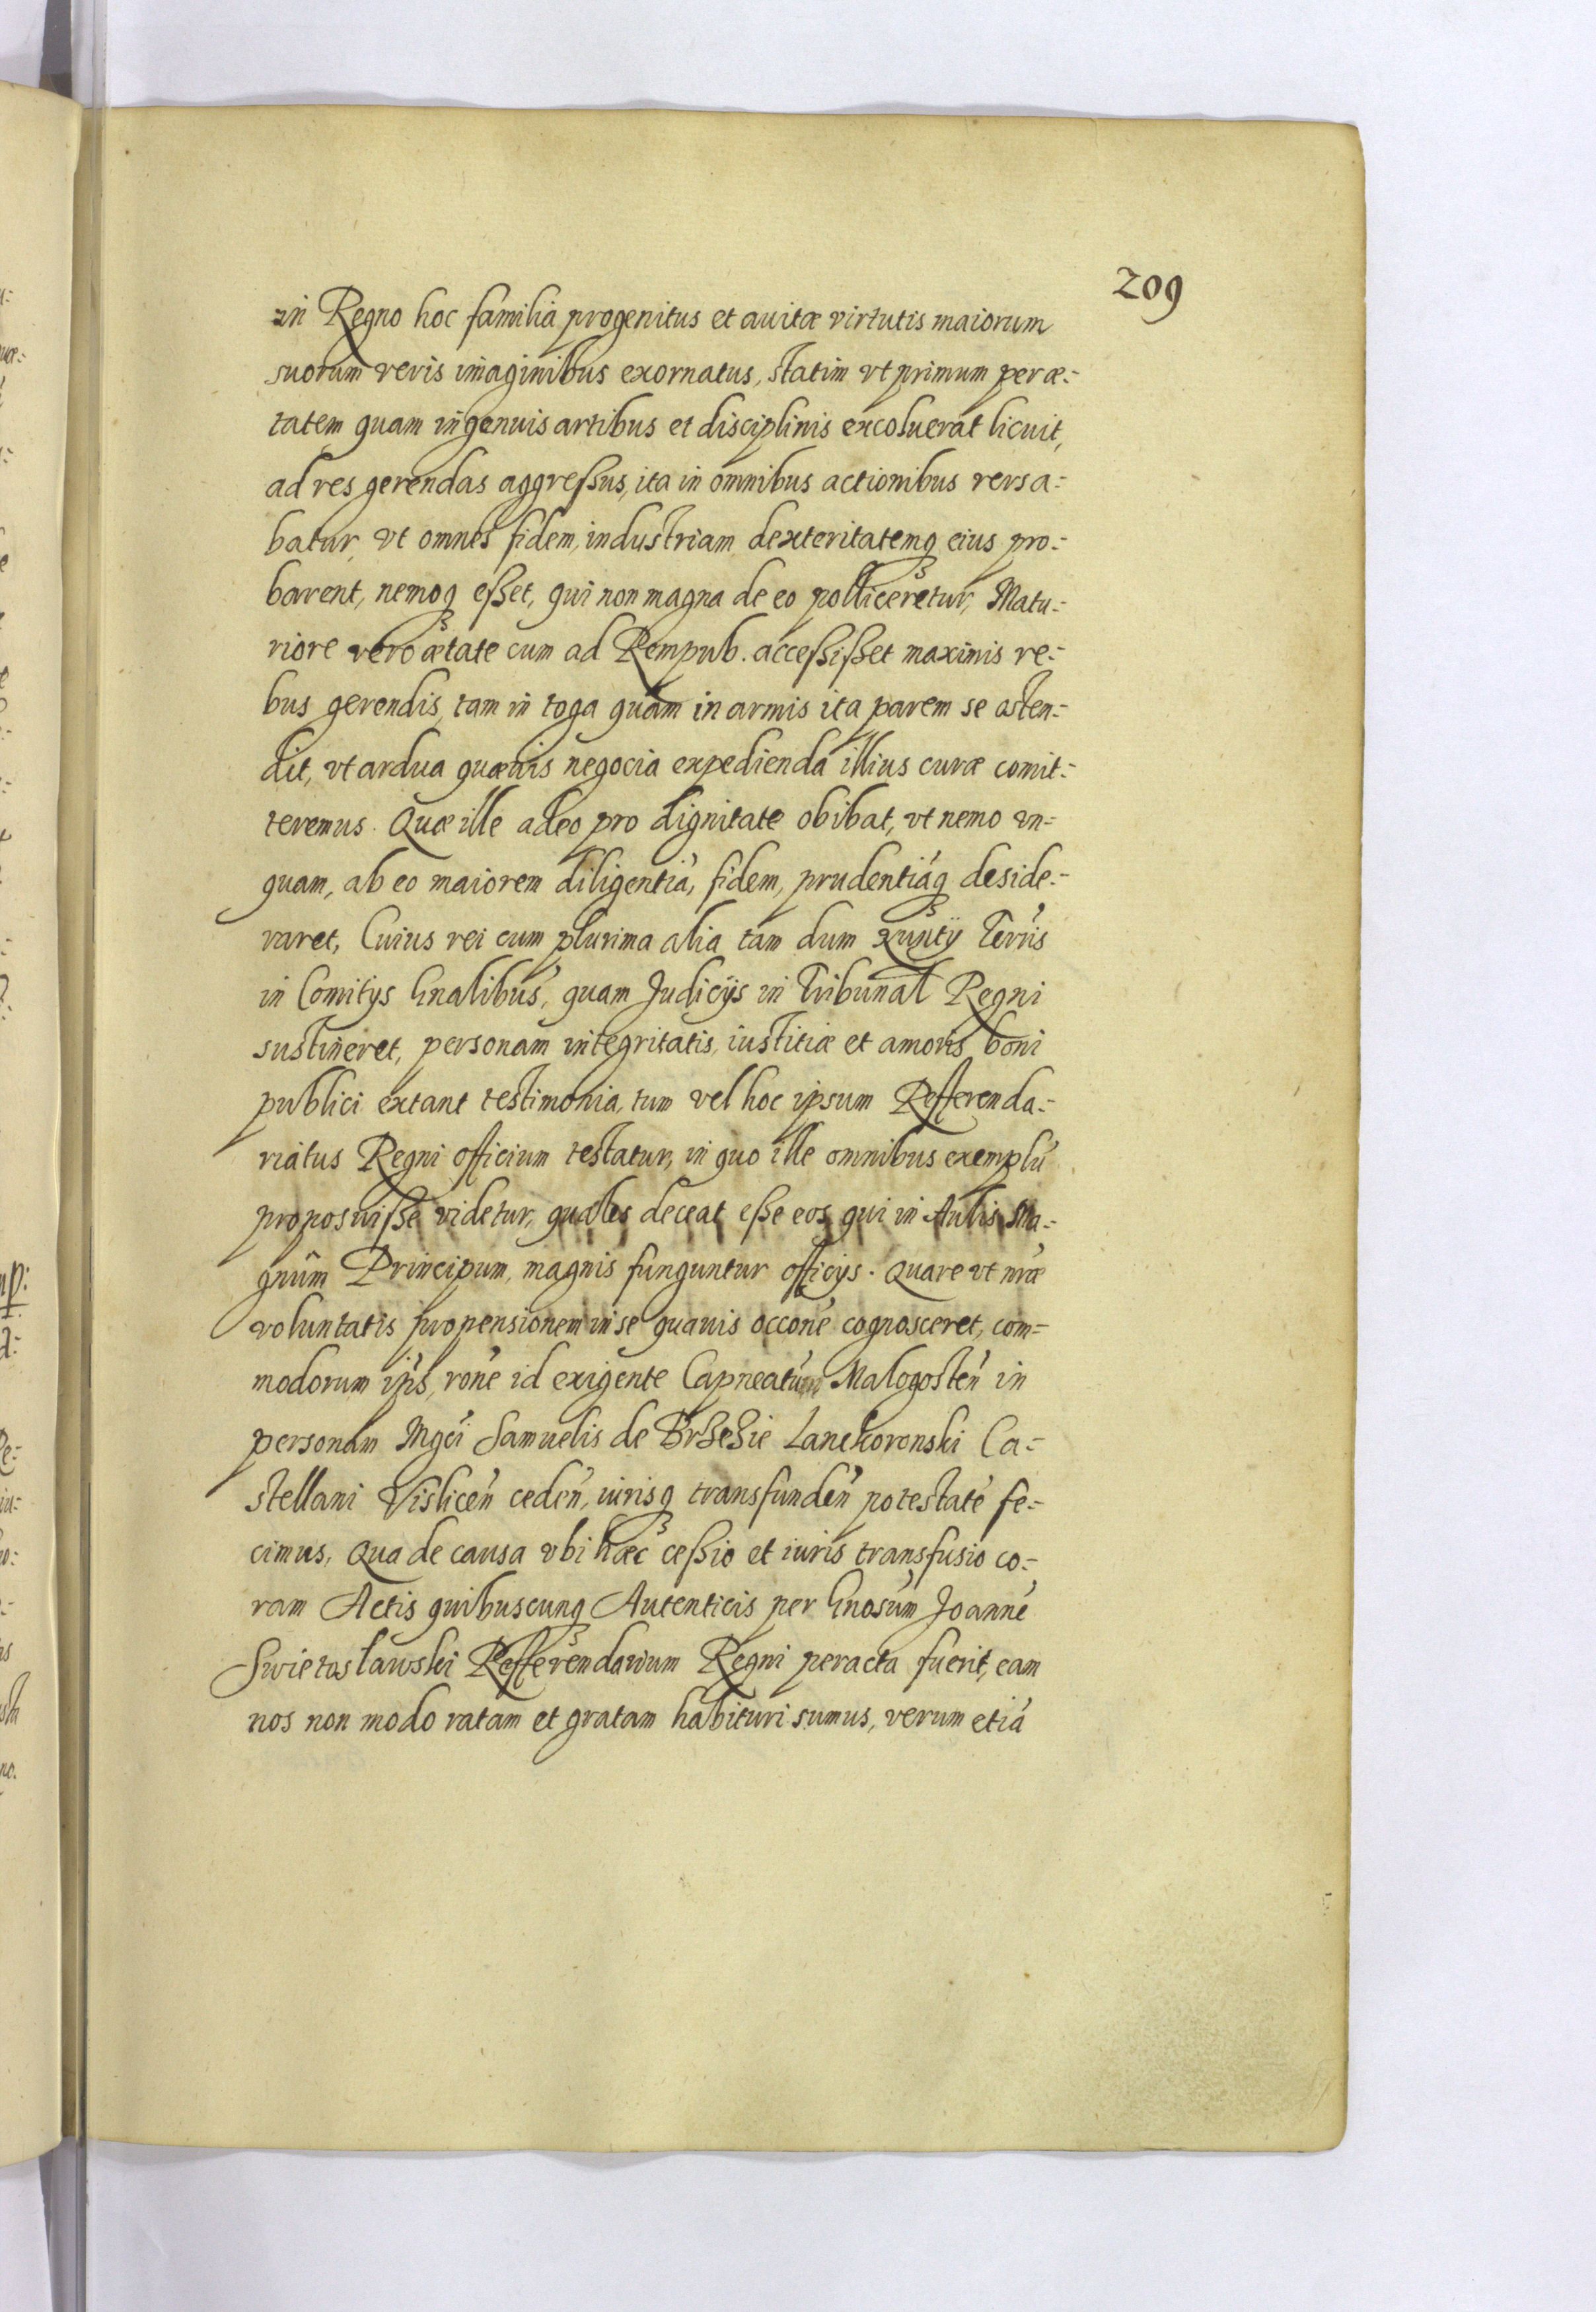 209
in Regno hoc familia progenitus et auitæ virtutis maiorum
suorum veris imaginibus exornatus, statim vt primum per æ:-
tatem quam ingenuis artibus et disciplinis excoluerat licuit,
ad res gerendas aggressus, ita in omnibus actionibus versa:-
batur, vt omnes fidem, industriam dexteritatemq3 eius pro:-
barent, nemoq3 esset, qui non magna de eo polliceretur, Matu:-
riore vero ætate cum ad Rempub. accessisset maximis re:-
bus gerendis, tam in toga quam in armis ita parem se osten:-
dit, vt ardua quæuis negocia expedienda illius curæ comit:-
teremus. Quæ ille adeo pro dignitate obibat, vt nemo vn=
quam, ab eo maiorem diligentiá, fidem, prudentiáq3 deside:-
raret, Cuius rei cum plurima alia tam dum Nuntÿ Terris
in Comitÿs Gnalibus, quam Judicÿs in Tribunal Regni
sustineret, personam integritatis, iustitiæ et amoris boni
publici extant testimonia, tum vel hoc ipsum Refferenda:-
riatus Regni officium testatur, in quo ille omnibus exemplú
proposuisse videtur, quales deceat esse eos, qui in Aulis Ma:-
gnûm Principum, magnis funguntur officÿs. Quare vt nræ
voluntatis propensionem in se quauis occone cognosceret, com=
modorum ipïs, rone id exigente Capneatum Malogosten in
personam Mgci Samuelis de Brzezie Lanckoronski Ca:-
stellani Vislicen ceden, iurisq3 transfunden potestaté fe:-
cimus, Qua de causa vbi hæc cessio et iuris transfusio co:-
ram Actis quibuscunq3 Autenticis per Gnosum Joanné
Swietoslawski Refferendarium Regni peracta fuerit, eam
nos non modo ratam et gratam habituri sumus, verum etiá